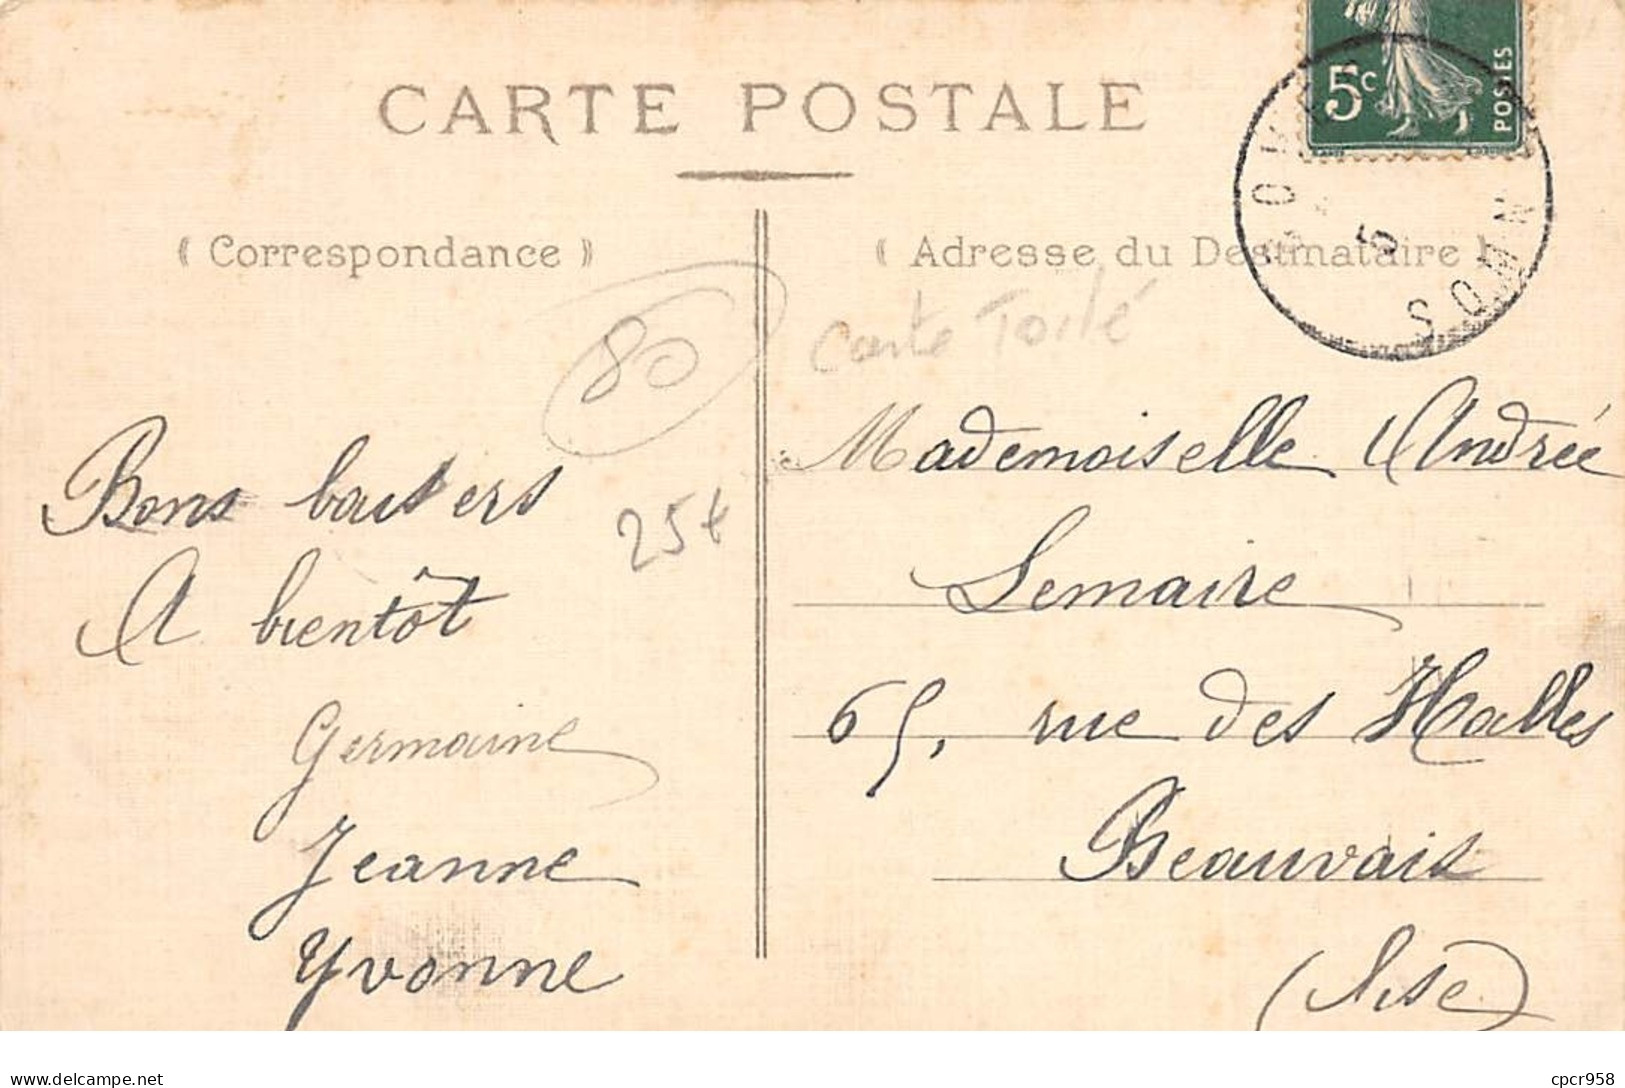 CARTE POSTALE
5c
POSTES
SOMM
5
( Correspondance )
( Adresse du Destinataire )
80
Carte Toilé
25€
Bons baisers
A bientôt
Germaine
Jeanne
Yvonne
Mademoiselle Andrée
Lemaire
65, rue des Halles
Beauvais
(Oise)
www.delcampe.net
cpcr958